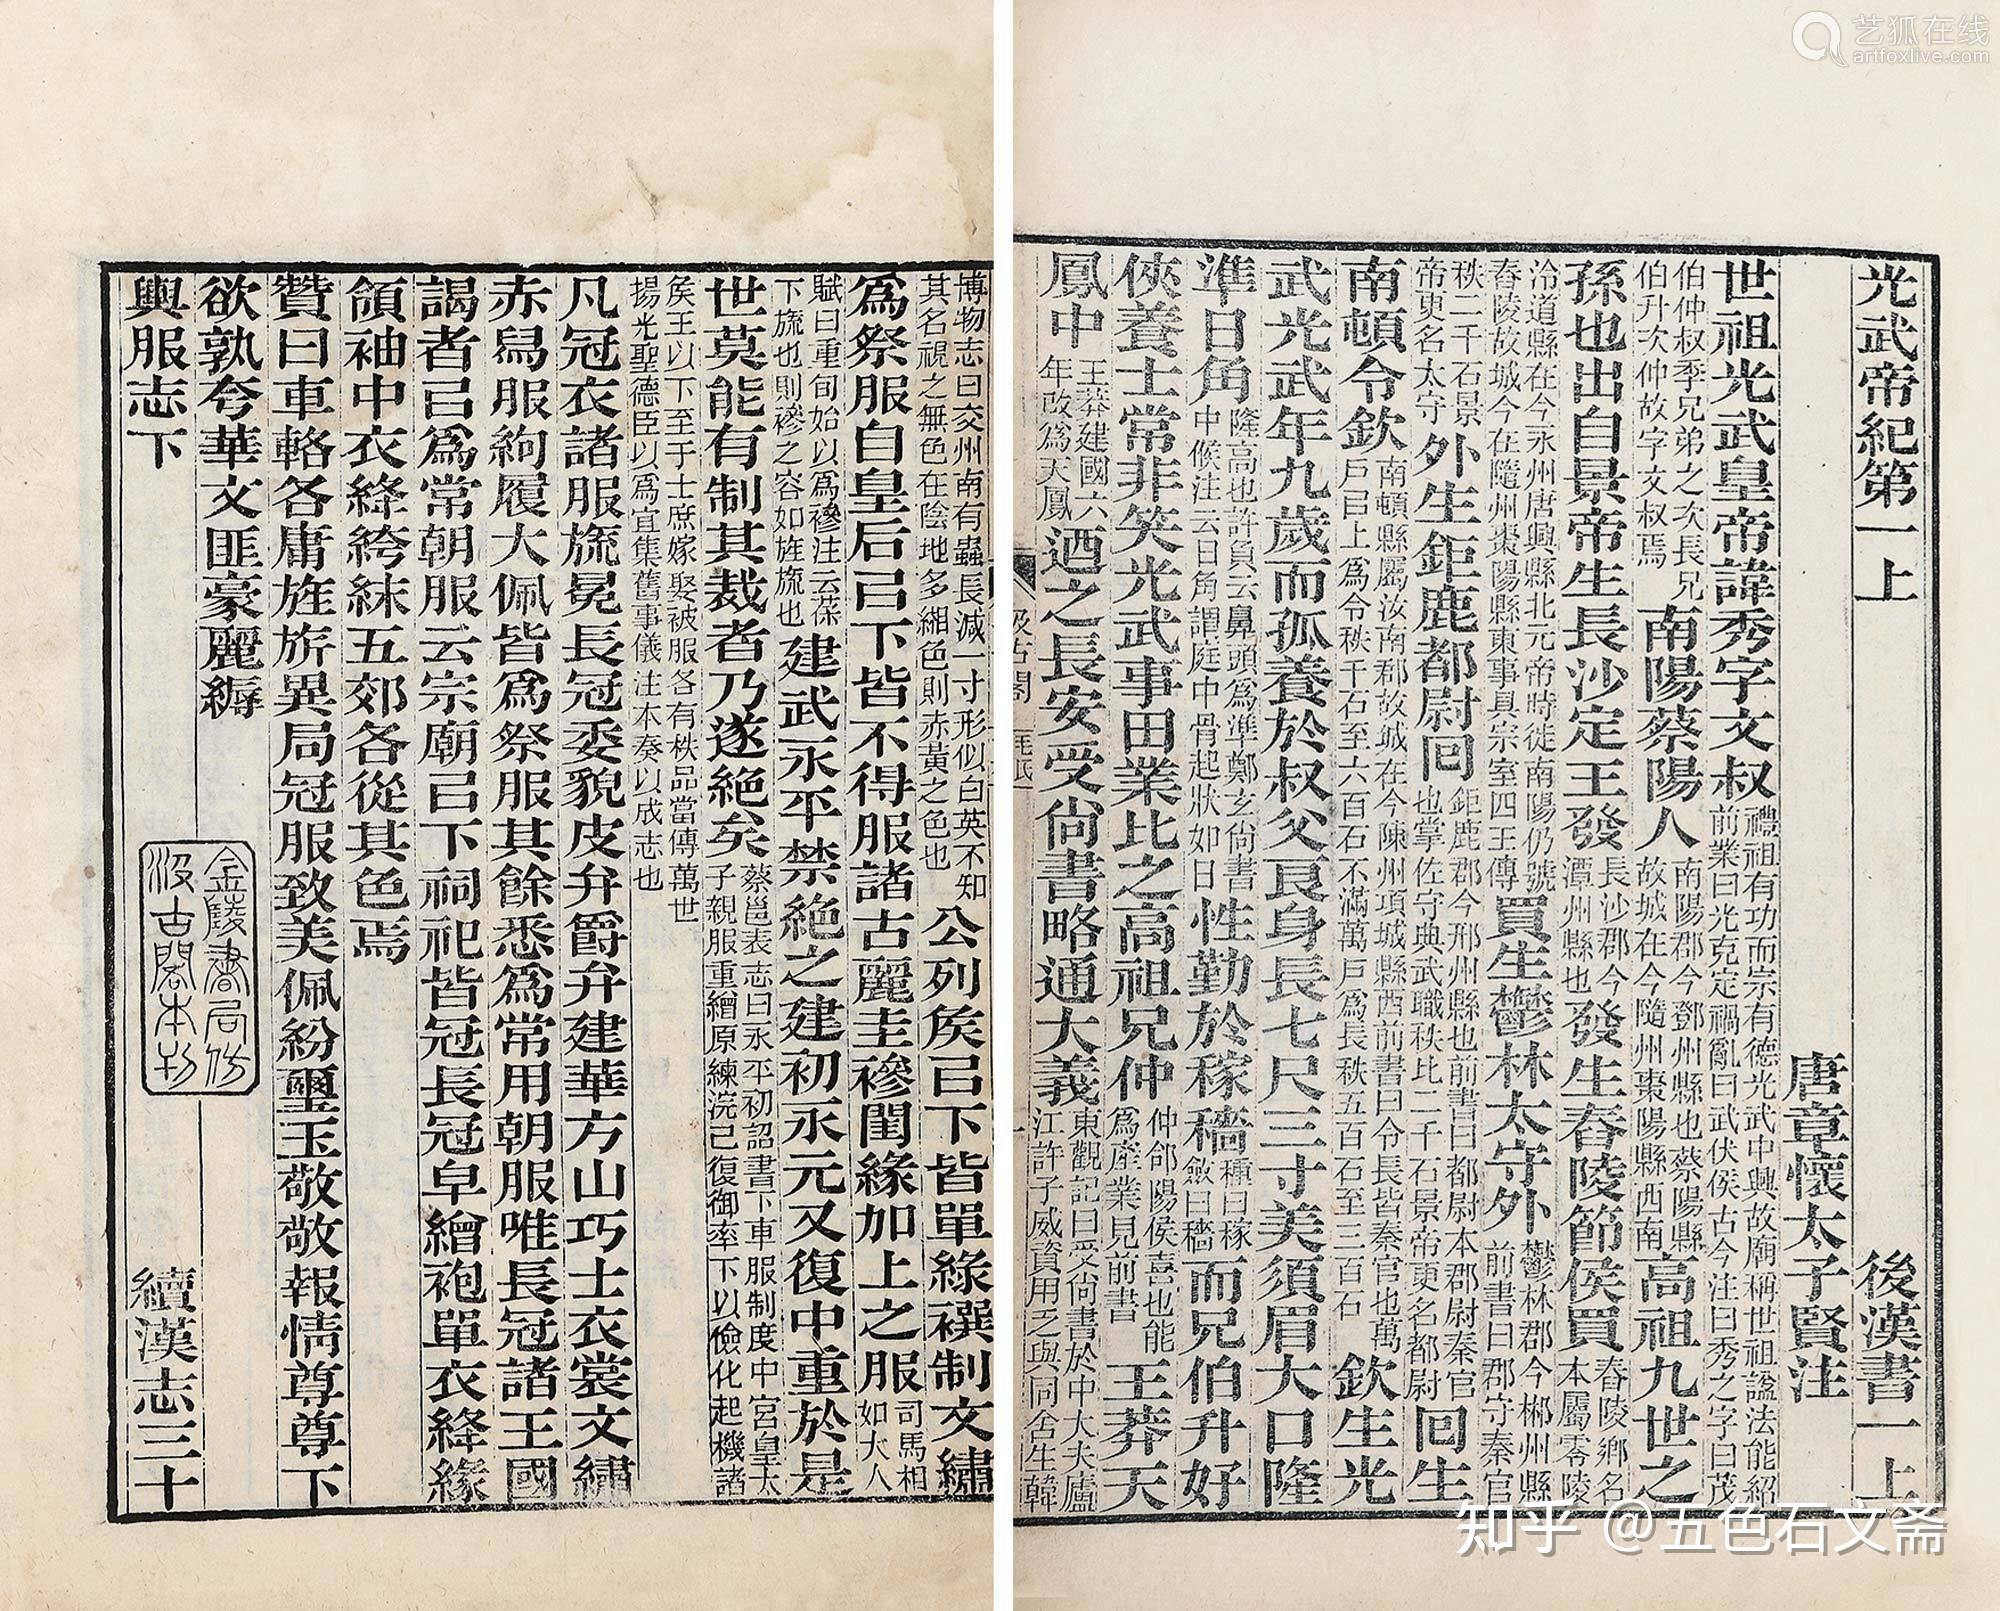 光武帝紀第一上 後漢書一上
唐章懷太子賢注
世祖光武皇帝諱秀字文叔禮祖有功而宗有德光武中興故廟稱世祖諡法能紹前業曰光克定禍亂曰武伏侯古今注曰秀之字曰茂
伯仲叔季兄弟之次長兄伯升次仲故字文叔焉南陽蔡陽人南陽郡今鄧州縣也蔡陽縣故城在今隨州棗陽縣西南高祖九世之
孫也出自景帝生長沙定王發長沙郡今潭州縣也發生舂陵節侯買舂陵鄉名本屬零陵
泠道縣在今永州唐興縣北元帝時徙南陽仍號舂陵故城今在隨州棗陽縣東事具宗室四王傳買生鬱林太守外鬱林郡今郴州縣前書曰郡守秦官
秩二千石景帝更名太守外生鉅鹿都尉回鉅鹿郡今邢州縣也前書曰都尉本郡尉秦官也掌佐守典武職秩比二千石景帝更名都尉回生
南頓令欽南頓縣屬汝南郡故城在今陳州項城縣西前書曰令長皆秦官也萬戶㠯上爲令秩千石至六百石不滿萬戶爲長秩五百石至三百石欽生光
武光武年九歲而孤養於叔父良身長七尺三寸美須眉大口隆
準日角隆高也許負云鼻頭爲準鄭玄尚書中候注云日角謂庭中骨起狀如日性勤於稼穡種曰稼斂曰穡而兄伯升好
俠養士常非笑光武事田業比之高祖兄仲仲郃陽侯喜也能爲產業見前書王莽天
鳳中王莽建國六年改爲天鳳迺之長安受尚書略通大義東觀記曰受尚書於中大夫廬江許子威資用乏與同舍生韓
汲古閣 毛氏
博物志曰交州南有蟲長減一寸形似白英不知其名視之無色在陰地多緗色則赤黃之色也公列矦㠯下皆單緣襈制文繡
爲祭服自皇后㠯下皆不得服諸古麗圭襂閨緣加上之服司馬相如大人
賦曰垂旬始以爲襂注云葆下旒也則襂之容如旌旒也建武永平禁絶之建初永元又復中重於是
世莫能有制其裁者乃遂絶矣蔡邕表志曰永平初詔書下車服制度中宮皇太子親服重繒厚練浣已復御率下以儉化起機諸
矦王以下至于士庶嫁娶被服各有秩品當傳萬世揚光聖德臣以爲宜集舊事儀注本奏以成志也
凡冠衣諸服旒冕長冠委貌皮弁爵弁建華方山巧士衣裳文繡
赤舄服絇履大佩皆爲祭服其餘悉爲常用朝服唯長冠諸王國
謁者㠯爲常朝服云宗廟㠯下祠祀皆冠長冠皁繒袍單衣絳緣
領袖中衣絳絝絑五郊各從其色焉
贊曰車輅各庸旌旂異局冠服致美佩紛璽玉敬敬報情尊尊下
欲孰夸華文匪豪麗縟
輿服志下 續漢志三十
金陵書局仿
汲古閣本刊
艺狐在线
artfoxlive.com
知乎 @五色石文斋